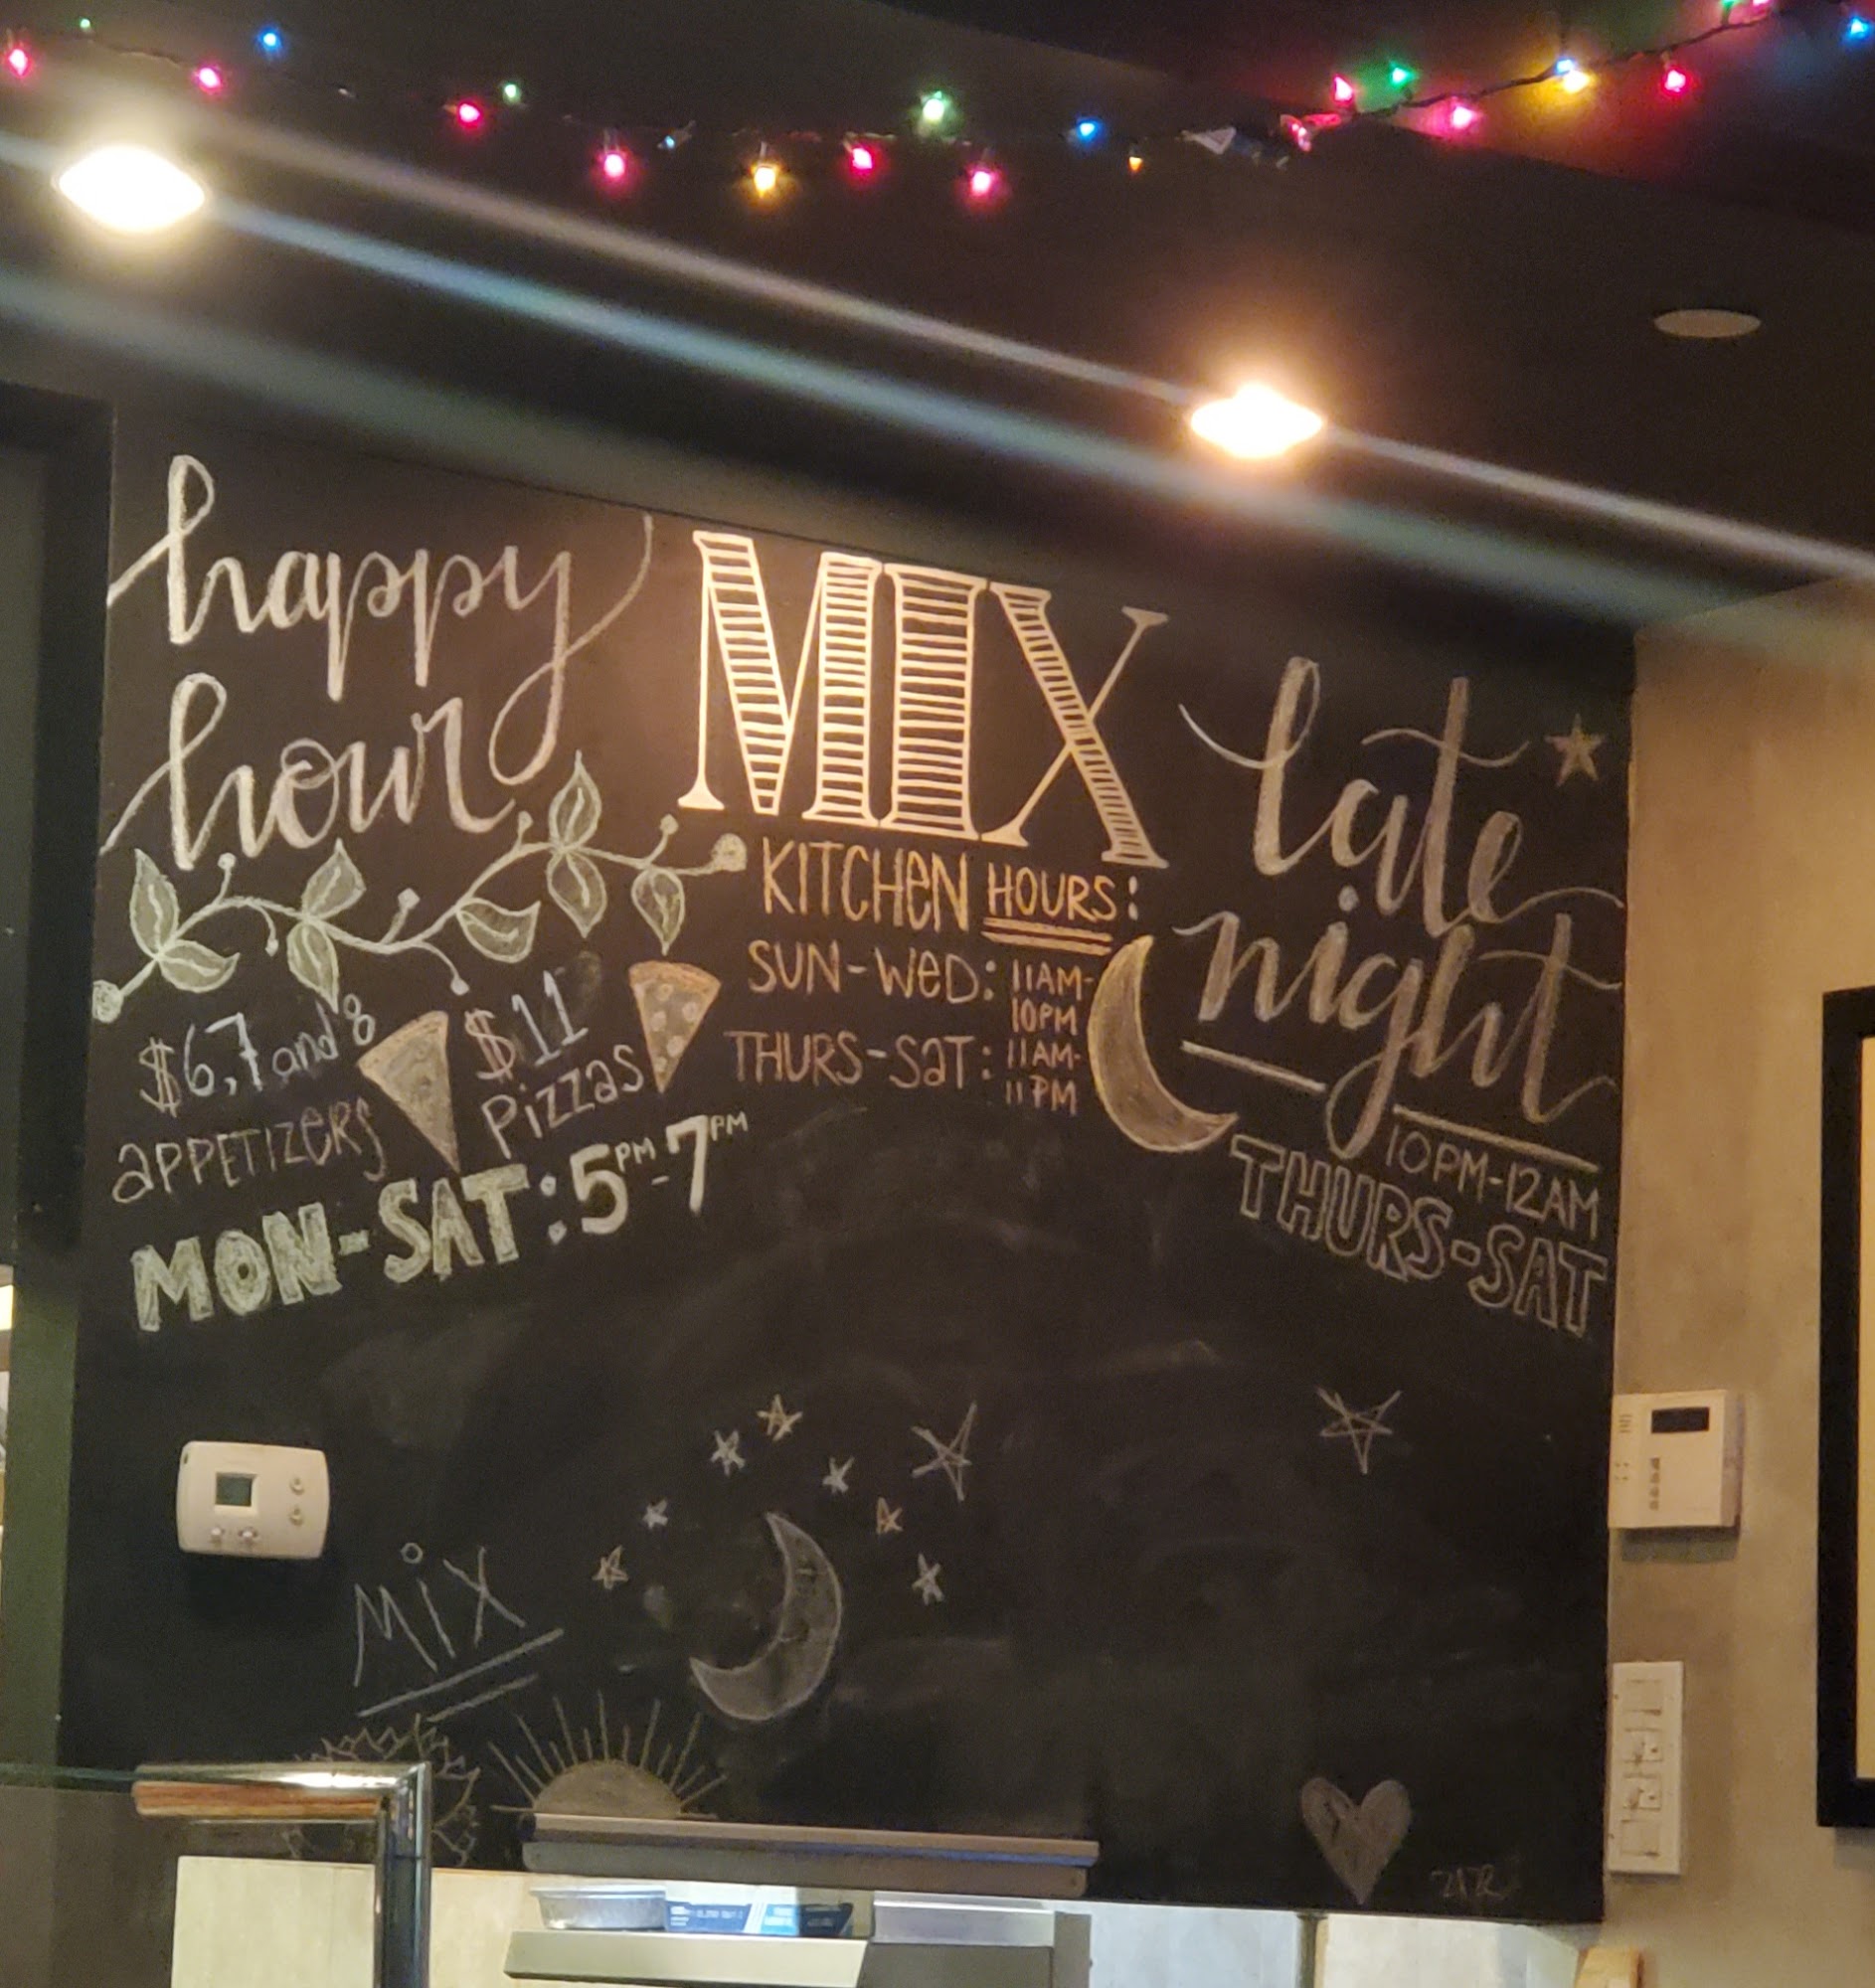 happy
hour
$6,7 and 8
appetizers
$11
Pizzas
MON-SAT: 5PM-7PM
MIX
KITCHEN HOURS:
SUN-WED: 11AM-
10PM
THURS-SAT: 11AM-
11PM
late
night
10PM-12AM
THURS-SAT
MiX